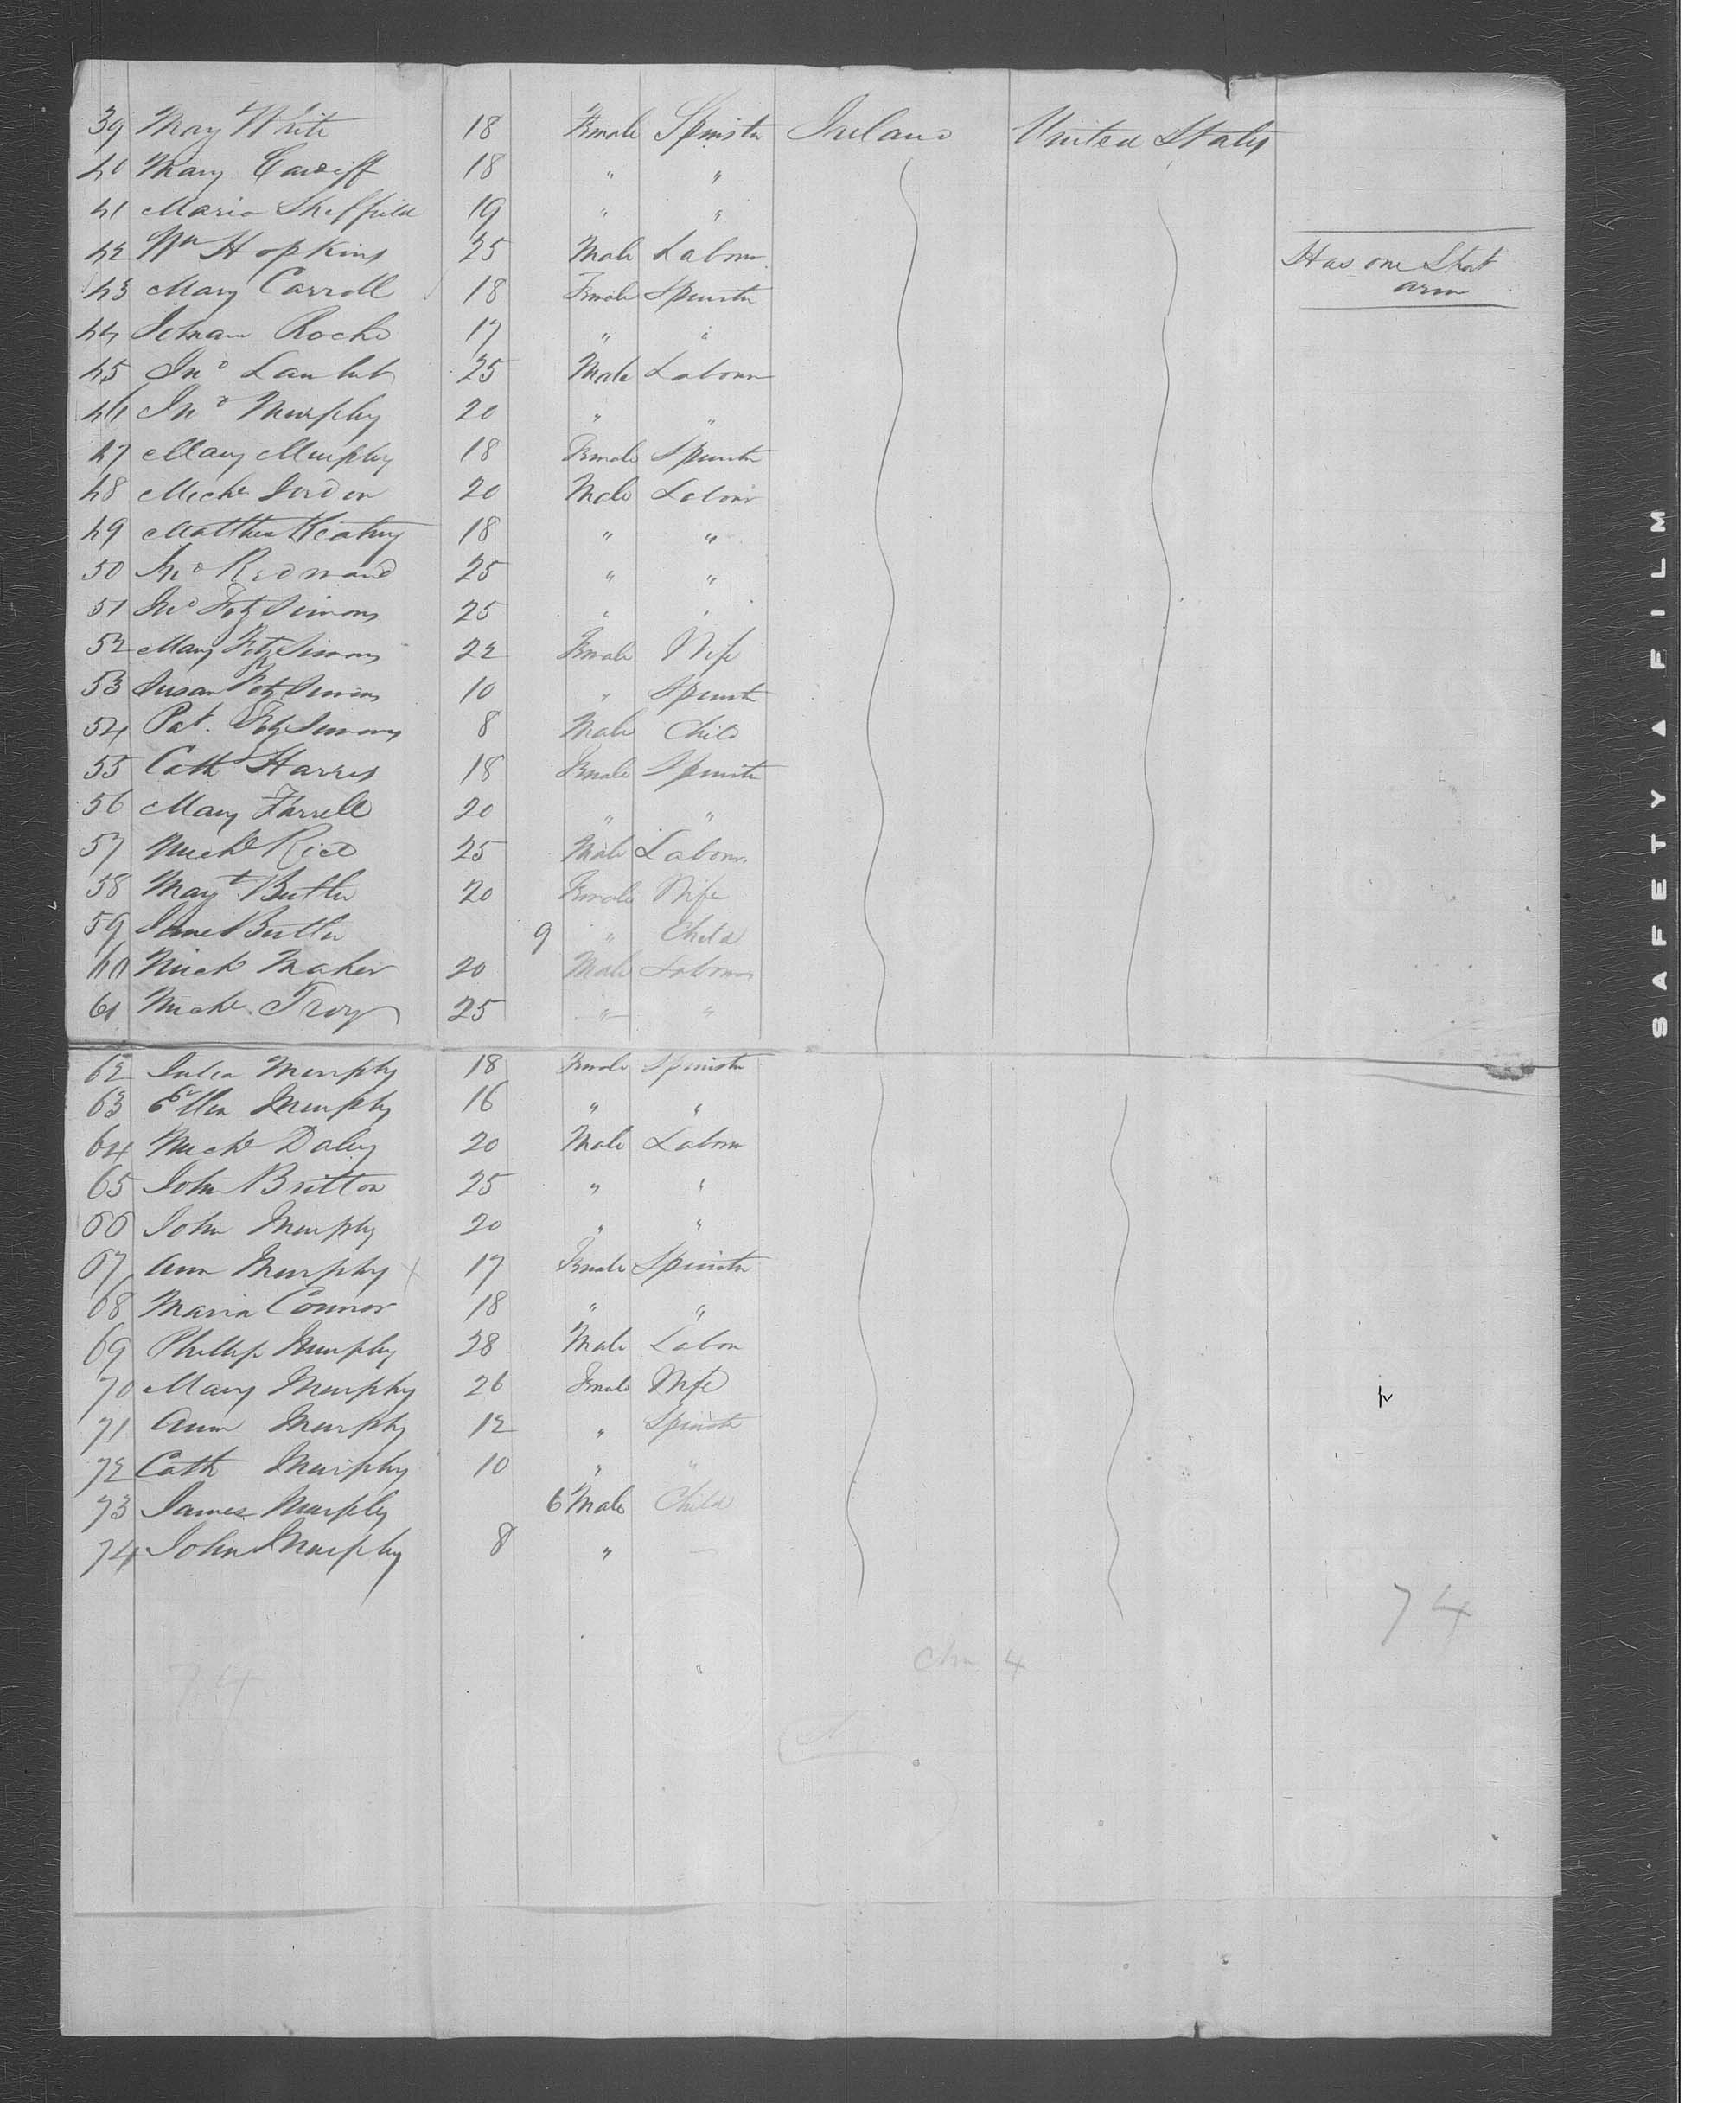 39 May White 18 Female Spinster Ireland United States
40 Mary Cardiff 18 " "
41 Maria Sheffield 19 " "
42 Wm Hopkins 25 Male Labour Has one Short
43 Mary Carroll 18 Female Spinster arm
44 Johan Roche 17 " "
45 Jno Lambert 25 Male Labour
46 Jno Murphy 20 " "
47 Mary Murphy 18 Female Spinster
48 Michl Jordon 20 Male Labour
49 Matthew Keating 18 " "
50 Jno Redmond 25 " "
51 Jno FitzSimons 25 " "
52 Mary FitzSimons 22 Female Wife
53 Susan FitzSimons 10 " Spinster
54 Pat. FitzSimons 8 Male Child
55 Cath Harris 18 Female Spinster
56 Mary Farrell 20 " "
57 Michl Rice 25 Male Labour
58 Mayt Butler 20 Female Wife
59 Jane Butler 9 " Child
60 Mick Maher 20 Male Labour
61 Michl. Troy 25 " "
62 Julia Murphy 18 Female Spinster
63 Ellen Murphy 16 " "
64 Michl Daley 20 Male Labour
65 John Britton 25 " "
66 John Murphy 20 " "
67 Ann Murphy x 17 Female Spinster
68 Maria Connor 18 " "
69 Phillip Murphy 28 Male Labour
70 Mary Murphy 26 Female Wife
71 Ann Murphy 12 " Spinster
72 Cath Murphy 10 " "
73 James Murphy 6 Male Child
74 John Murphy 8 " —
74
74 Chn 4
SAFETY A FILM